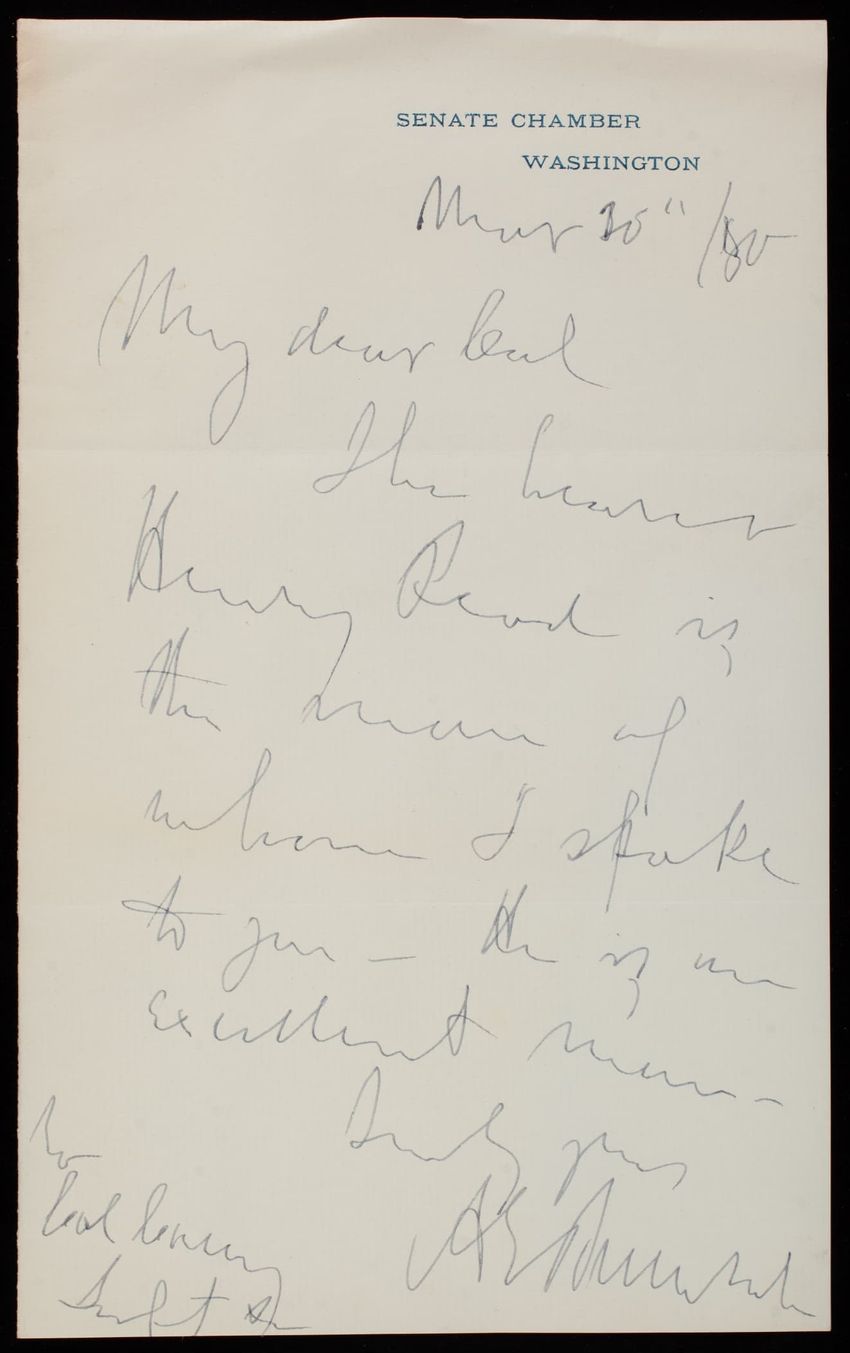 SENATE CHAMBER
WASHINGTON
Mar 30" /80
My dear Col
The bearer
Henry Read is
the man of
whom I spoke
to you – He is an
excellent man –
Truly yours
A E Burnside
To
Col Casey
Supt &c